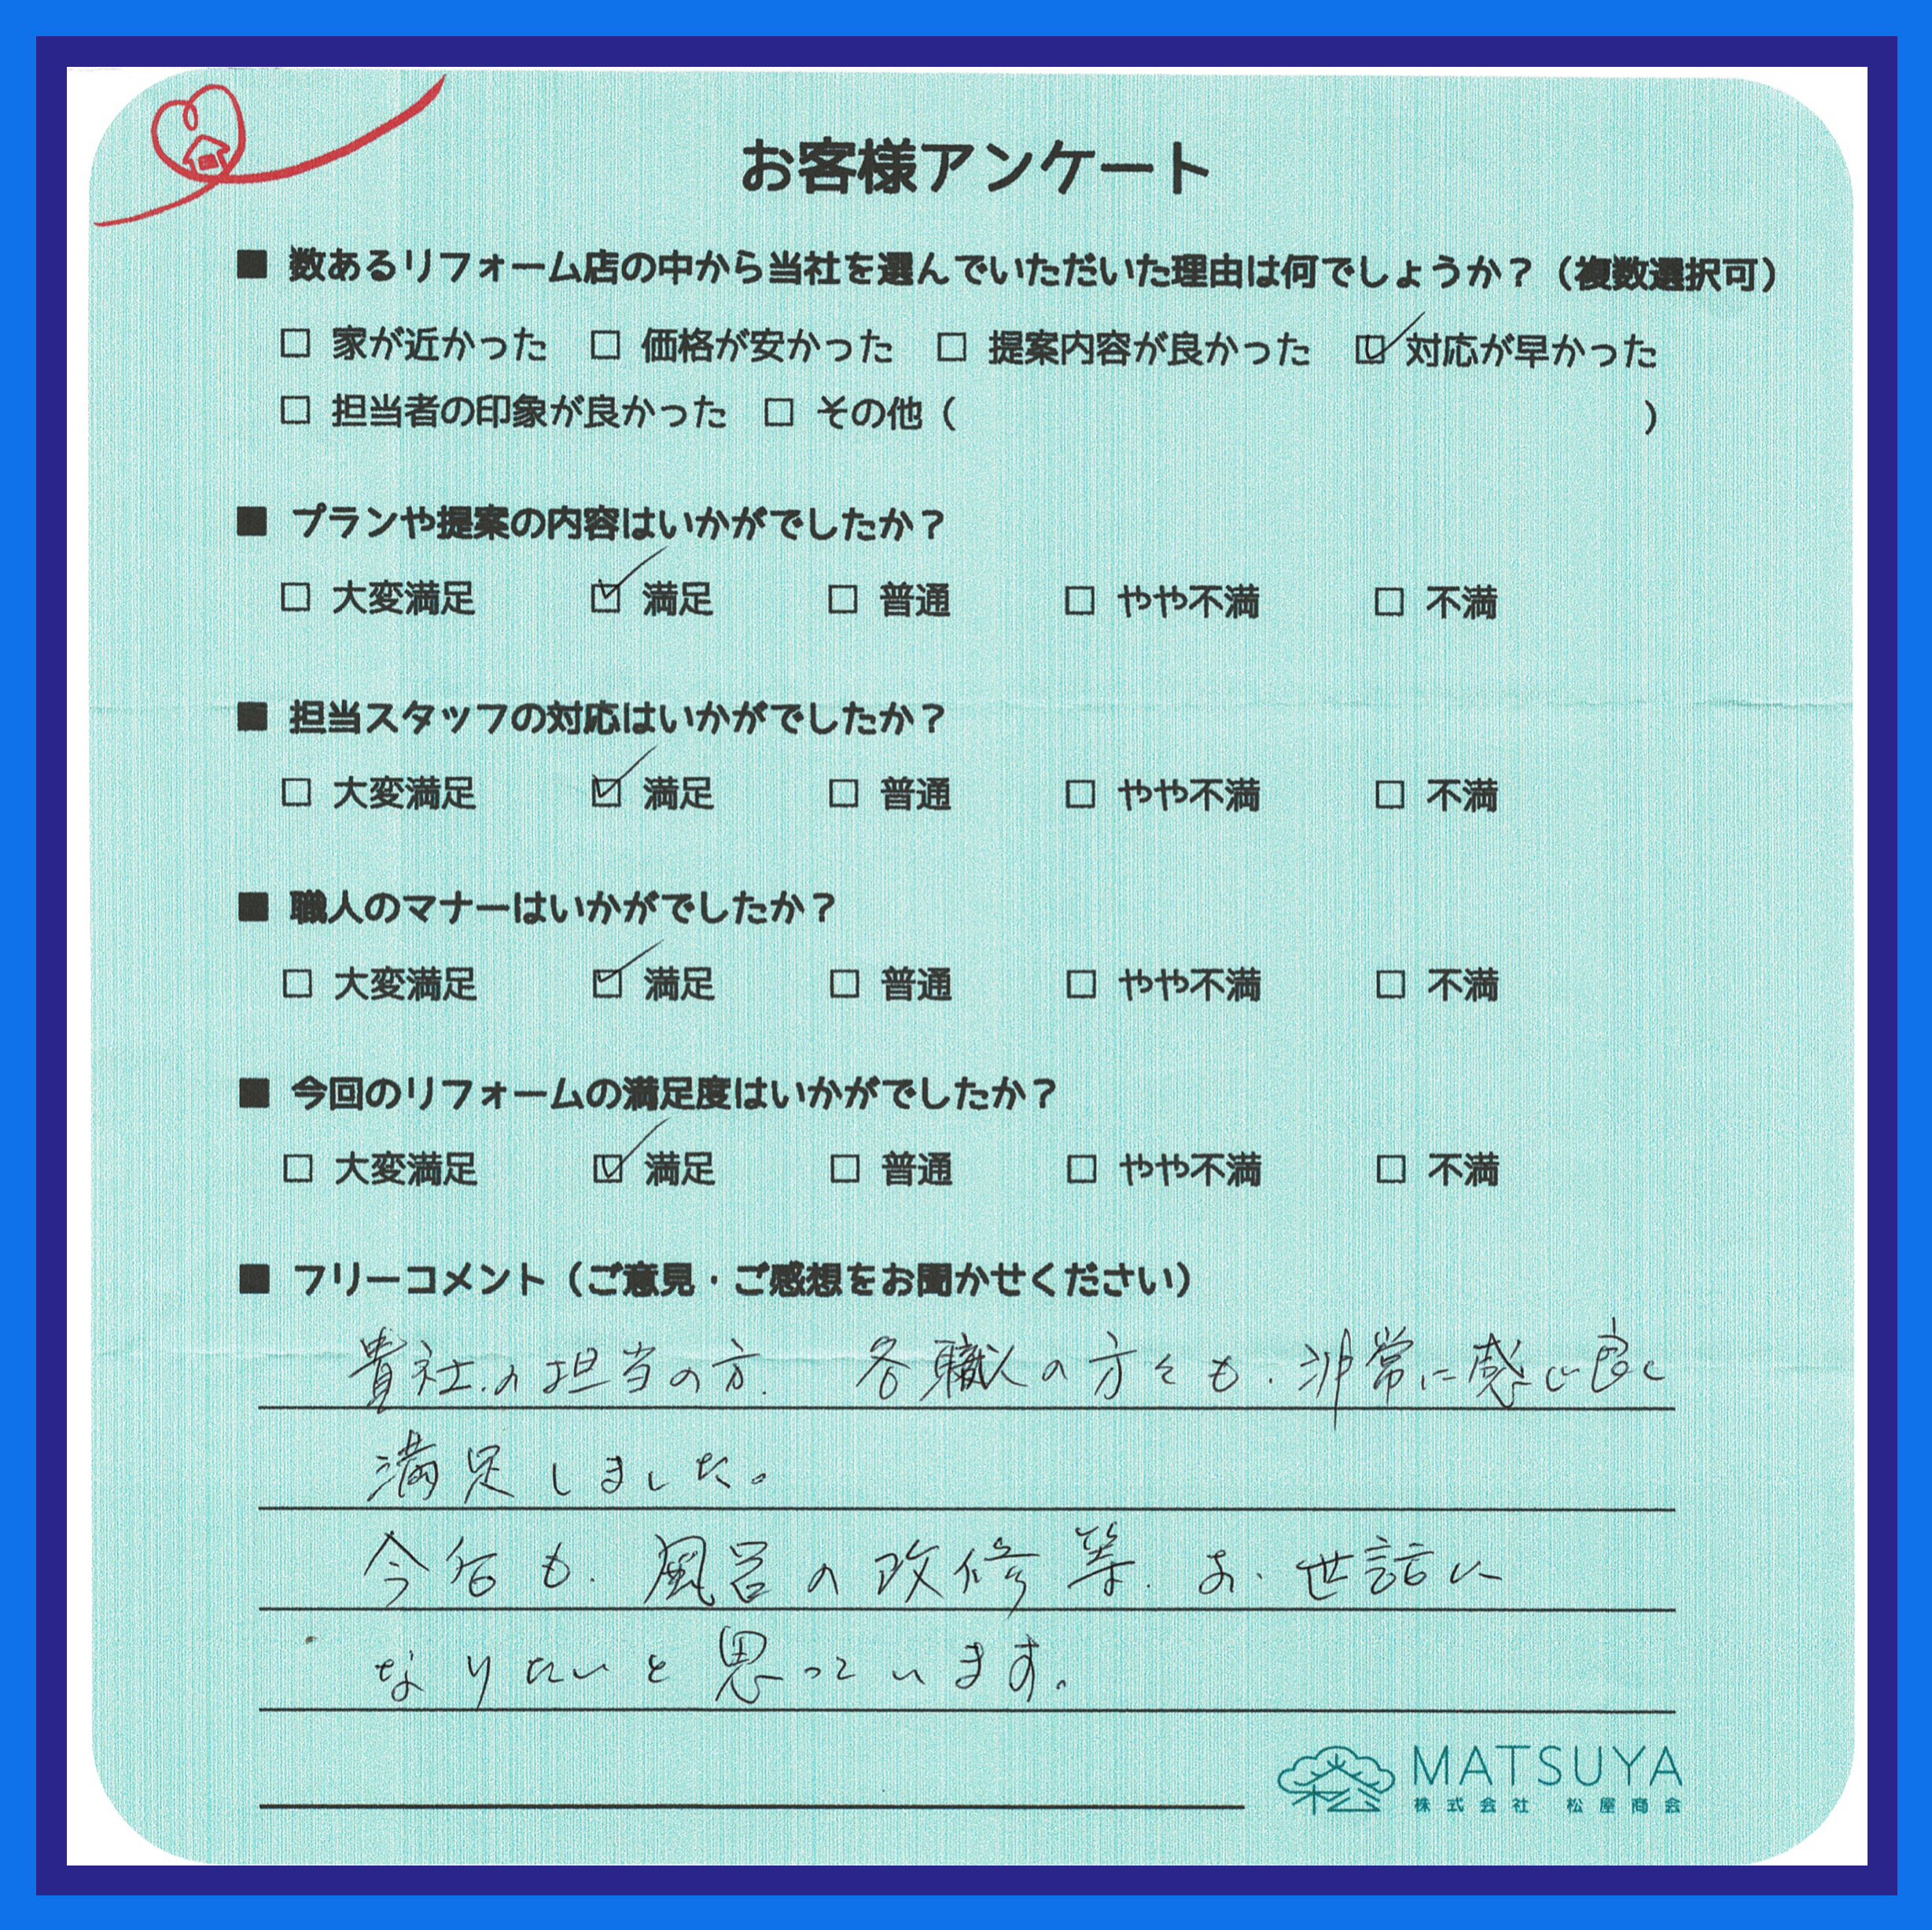 お客様アンケート
■ 数あるリフォーム店の中から当社を選んでいただいた理由は何でしょうか？（複数選択可）
□ 家が近かった □ 価格が安かった □ 提案内容が良かった ☑ 対応が早かった
□ 担当者の印象が良かった □ その他（ ）
■ プランや提案の内容はいかがでしたか？
□ 大変満足 ☑ 満足 □ 普通 □ やや不満 □ 不満
■ 担当スタッフの対応はいかがでしたか？
□ 大変満足 ☑ 満足 □ 普通 □ やや不満 □ 不満
■ 職人のマナーはいかがでしたか？
□ 大変満足 ☑ 満足 □ 普通 □ やや不満 □ 不満
■ 今回のリフォームの満足度はいかがでしたか？
□ 大変満足 ☑ 満足 □ 普通 □ やや不満 □ 不満
■ フリーコメント（ご意見・ご感想をお聞かせください）
貴社の担当の方、各職人の方々も、非常に感じ良く
満足しました。
今后も、風呂の改修等、お世話に
なりたいと思っています。
MATSUYA
株式会社 松屋商会